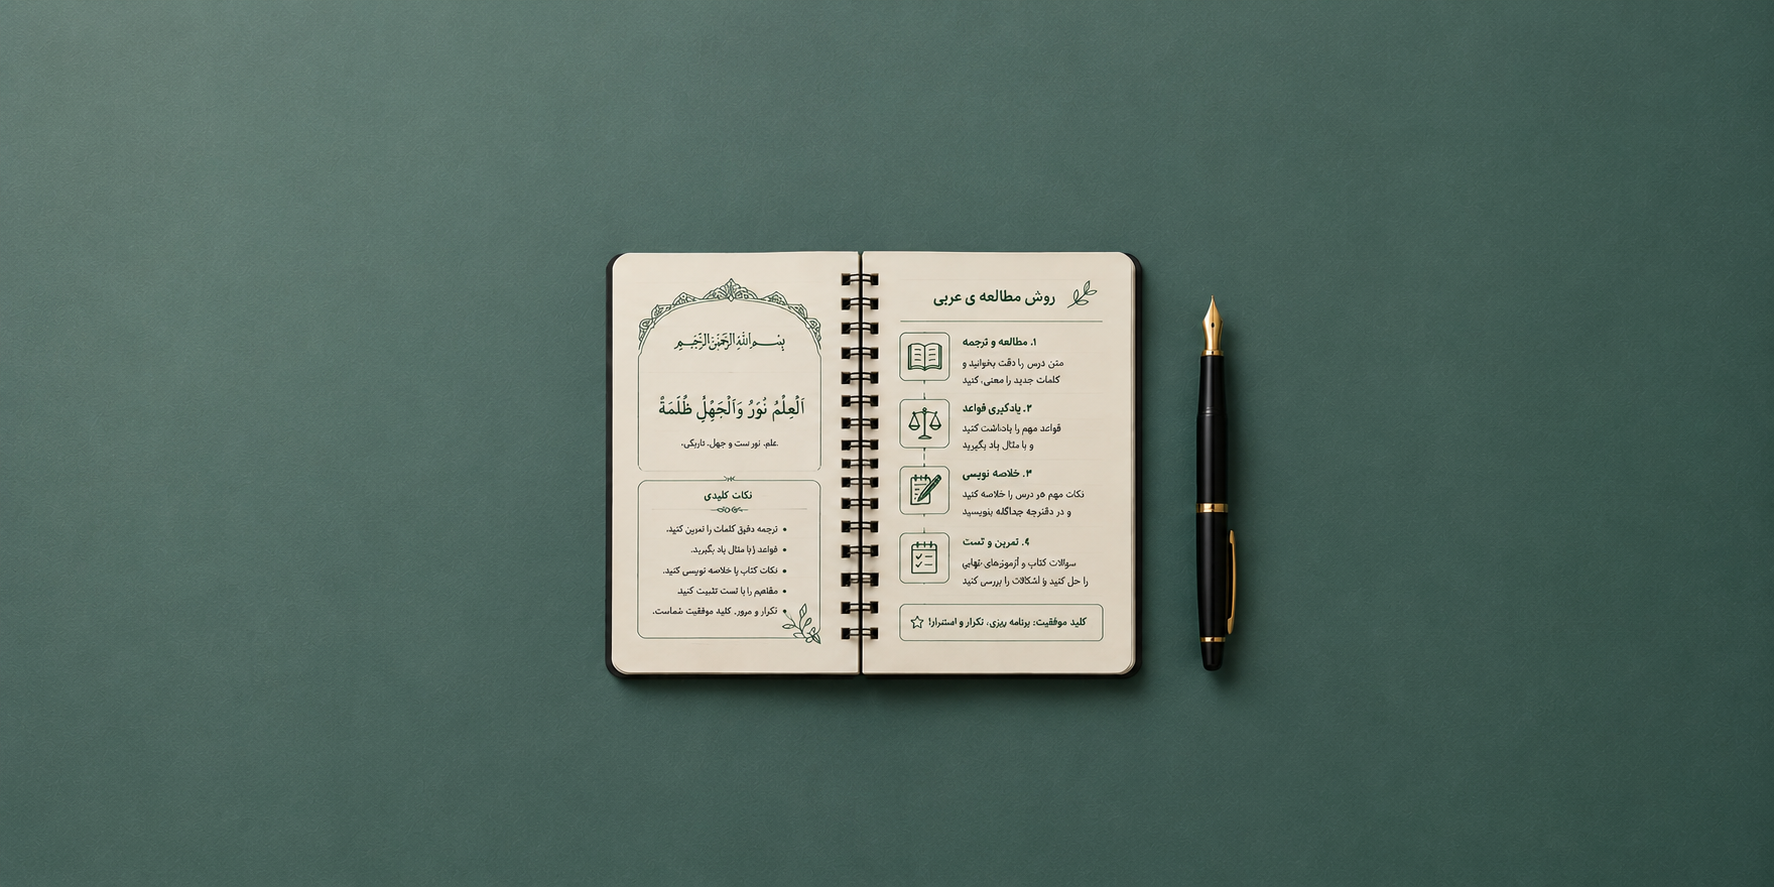 روش مطالعه ی عربی
۱. مطالعه و ترجمه
متن درس را دقت بخوانید و
کلمات جدید را معنی کنید
۲. یادگیری قواعد
قواعد مهم را یادداشت کنید
و با مثال یاد بگیرید
۳. خلاصه نویسی
نکات مهم هر درس را خلاصه کنید
و در دفترچه جداگانه بنویسید
۴. تمرین و تست
سوالات کتاب و آزمون‌های نهایی
را حل کنید و اشکالات را بررسی کنید
کلید موفقیت: برنامه ریزی، تکرار و استمرار!
بسم الله الرحمن الرحیم
اَلْعِلْمُ نُورُ وَالْجَهْلُ ظُلْمَةٌ
علم، نور ست و جهل، تاریکی.
نکات کلیدی
ترجمه دقیق کلمات را تمرین کنید.
قواعد را با مثال یاد بگیرید.
نکات کتاب را خلاصه نویسی کنید.
مفاهیم را با تست تثبیت کنید.
تکرار و مرور، کلید موفقیت شماست.